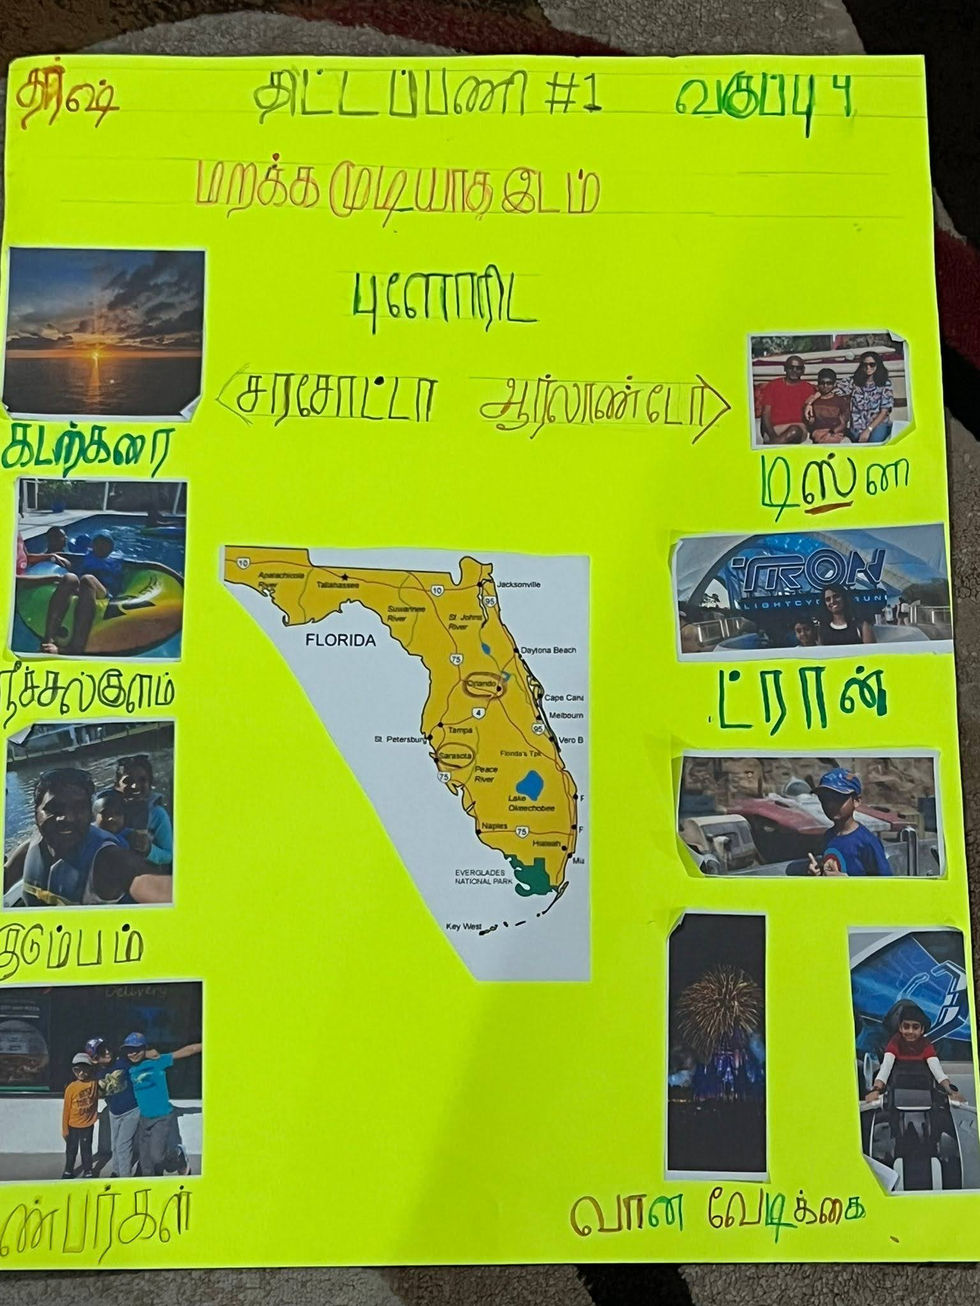 தர்ஷ் திட்டப்பணி #1 வகுப்பு 4
மறக்க முடியாத இடம்
புளோரிட
சரசோட்டா ஆர்லாண்டோ
கடற்கரை
நீச்சல்குளம்
குடும்பம்
Delivery
ண்பர்கள்
டிஸ்னி
TRON
LIGHTCYCLE RUN
ட்ரான்
வான வேடிக்கை
FLORIDA
10
Apalachicola
River
Tallahassee
10
Jacksonville
95
Suwannee
River
St. Johns
River
75
Daytona Beach
Orlando
Cape Can
4
Melbourn
95
Tampa
St. Petersburg
Vero B
Florida's Tpk
Sarasota
75
Peace
River
Lake
Okeechobee
Naples
75
Hialeah
Mia
EVERGLADES
NATIONAL PARK
Key West